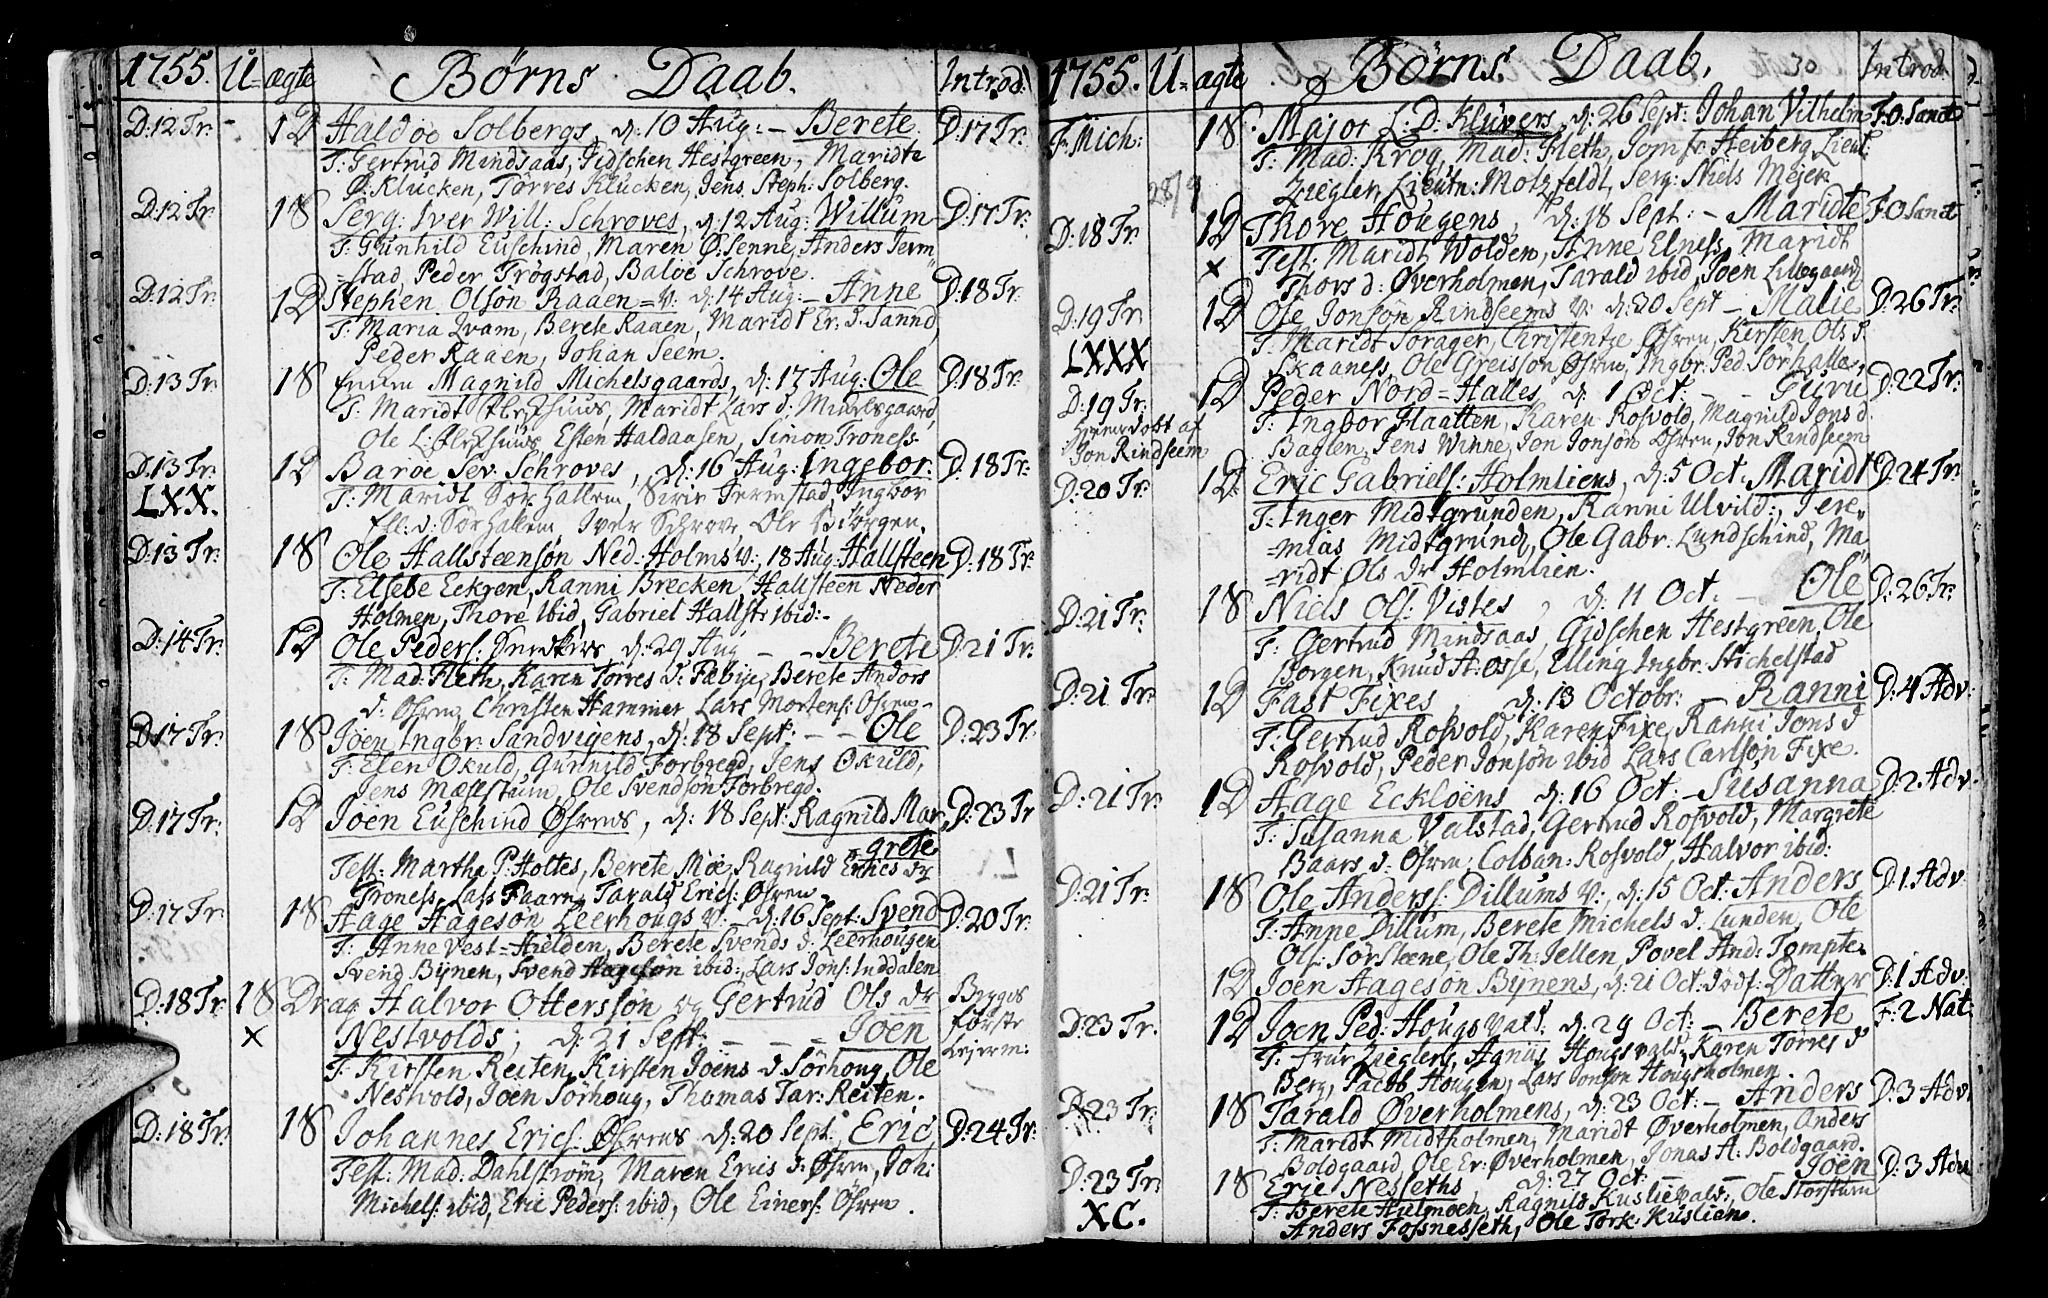 1755. U= ægte Børns Daab. Introd:
D:12 Tr. - 1D Haldoe Solbergs, d: 10 Aug: - Berete D:17 Tr:
T: Gertrud Mindsaas, Gidschen Hestgreen, Maridt
Ø. Klucken, Törres Klucken, Jens Steph: Solberg.
D:12 Tr. 1S Serg: Iver Will: Schroves, d: 12 Aug: Willum D:17 Tr:
T: Gunhild Euschind, Maren Ø:senne, Anders Jerm
=stad, Peder Trögstad, Baloe Schrove.
D:12 Tr: 1D Stephen Olsön Raaen=v: d: 14 Aug: - Anne D:18 Tr.
T: Maria Qvam, Berete Raaen, Maridt Er: d: Sannd,
Peder Raaen, Johan Seem.
D:13 Tr: 1S Magnild Michelsgaards, d: 17 Aug: Ole D:18 Tr:
T: Maridt Maridt Lars d: Michelsgaard,
Ole L: Esten Haldaasen, Simon Troness.
D:13 Tr: 1D Baroe Sev: Schroves, d: 16 Aug: Ingebor: D:18 Tr:
LXX. T: Maridt Sör Hallem, Siri Jermstad, Ingbor
d: Sör Hallem Iver Schrove, Ole Biörgen.
D:13 Tr: 1S Ole Hallsteensön Ned-Holms v:, 18 Aug: Hallsteen D:18 Tr:
T: Elsebe Eckren, Ranni Brecken, Hallsteen Neder
Holmen, Thore ibid, Gabriel Hallst: ibid:-
D:14 Tr: 1D Ole Peders: d: 29 Aug - - Berete D:21 Tr:
T: Mad: Fleth, Karen Törres d: Fæbye, Berete Andors
d: Öhren, Christen Hammer Lars Mortens: Öhren-
D:17 Tr: 1S Joen Ingbr: Sandvigens, d: 18 Sept: - - Ole D:23 Tr:
T: Elen Okuld, Gunnild Forbregd, Jens Okuld,
Jens Ole Svendsön Forbregd.
D:17 Tr: 1D Joen Euschind Øhrens, d: 18 Sept: Ragnild Mar D:23 Tr
grete
Test: Martha P: Holtes, Berete Moe, Ragnild Erics dr
Troness, Lars Faarn, Tarald Erics: Øhren
D:17 Tr. 1S Aage Aagesön Leerhougs v: - d: 16 Sept: Svend D:20 Tr:
T: Anne Vest=Hielden, Berete Svends d: Leerhougen
Svend Bÿnen, Svend Aagesön ibid:, Lars Jons: Inddalen
D:18 Tr 1S Drag Halvor Ottersson og Gertrud Ols dr Begges
× Nestvolds; d: 21 Sept: - - - Joen første
T: Kirsten Reiten, Kirsten Joens d Sörhoug, Ole Lejerm:
Nestvold, Joen Sörhoug, Thomas Tar: Reiten.
D:18 Tr: 1S Johannes Erics: Øhrens d: 20 Sept: Eric D:24 Tr:
Test: Mad: Dahlström, Maren Erics d: Øhren, Joh:
Michels: ibid, Eric Peders: ibid, Ole Einers: Öhren.
1755. U= ægte Børns Daab. 30 Introd
F: Mich: 1S Major L: D: Klüvers, d: 26 Sept: Johan Vilhelm F:O:Sanct
T: Mad: Krog, Mad: Fleth, Jomfr Heiberg Lieut:
28/9 Ziegler, Lieutn: Motzfeldt, Serg: Niels Mejer
D:18 Tr. 1D Thore Hougens, d: 18 Sept: - Maridt F.O Sanct
× Test: Maridt Wolden, Anne Elness, Maridt
Thors d: Øverholmen, Tarald ibid, Joen Lillegaard
D:19 Tr. 1D Ole Jonsön Rindseems v: d: 30 Sept - Malie D:26 Tr:
LXXX T: Maridt Sorager, Christentze Öhren, Kirsten Ols d
Skaaness, Ole Greisson Öhren, Ingbr: Ped: Sorhalle,
D:19 Tr. 1D Peder Nord=Halles, d: 1 Oct: - - Guru D:22 Tr:
Hiemedöbt af T: Ingbor Haatten, Karen Rosvold, Magnild Jons d
Jon Rindseem Baglen, Jens Winne, Jon Jonsön Öhren, Jon Rindseem
D:20 Tr: 1D Eric Gabriels: Holmliens, d: 5 Oct: Maridt D:24 Tr:
T: Inger Midtgrunden, Ranni Ulvild:, Jere,
=mias Midtgrund, Ole Gabr: Lundschind, Ma,
=ridt Ols dr Holmlien.
D:21 Tr: 1S Niels Ols: Vistes, d: 11 Oct: - Ole D:26 Tr:
T: Gertrud Mindsaas, Gidschen Hestgreen, Ole
Borgen, Knud A: Osse, Elling Ingbr: Stichelstad
D:21 Tr: 1D Fast Fixes, d: 13 Octobr: - Ranni D:4 Adv:
T: Gertrud Rosvold, Karen Fixe, Ranni Jons d
Rosvold, Peder Jonsön ibid Lars Carlsön Fixe.
D:21 Tr: 1D Aage Ecklöens d: 16 Oct: - Susanna D:2 Adv:
T: Susanna Valstad, Gertrud Rosvold, Margrete
Baars d: Öhren, Colban: Rosvold, Halvor ibid:
D:21 Tr: 1S Ole Anderss: Dillums v:, d: 15 Oct: Anders D:1 Adv:
T: Anne Dillum, Berete Michels d: Lunden, Ole
Ols: Sörsteene, Ole Th: Jellen Povel And: Tompte.
1D Joen Aagesön Bÿnens, d: 21 Oct: Dödf: Datter D:1 Adv:
D:23 Tr: 1D Joen Ped: Hougs vald: d: 29 Oct: - Berete F:2 Nat:
T: Frue Zieglers, Agnus Hougsvald, Karen Törres d
Berg, Jacob Hougen, Lars Jonson Hougsholmen
D:23 Tr: 1S Tarald Øverholmens, d: 23 Oct: - Anders D:3 Adv:
T: Maridt Midtholmen, Maridt Øverholmen, Anders
Boldgaard, Ole Er: Øverholmen, Jonas A: Boldgaard.
D:23 Tr: 1S Eric Nesseths, d: 27 Oct: - Joen D:3 Adv
XC. T: Berete Hulmoen, Ragnild Kuslievald:, Ole Storstum
Anders Fossnesseth, Ole Tork: Kuslien.